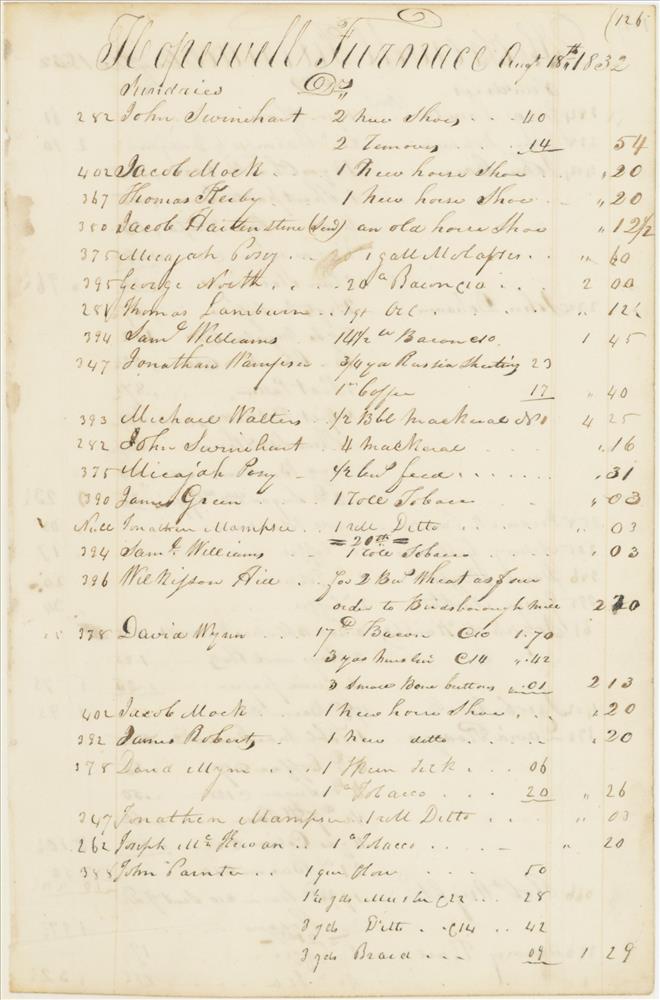 (126
Hopewell Furnace Augt 18th 1832
Sundries Drs
282 John Swinehart 2 new Shoes 40
2 Removes 14 54
402 Jacob Mock 1 New horse Shoe " 20
367 Thomas Kerby 1 New horse Shoe " 20
350 Jacob (Sen) an old horse Shoe " 12½
375 Micajah Posy 1 gall Molasses " 60
395 George North 20 lb Bacon @10 2 00
281 Thomas 1 qt Oil " 12½
394 Saml Williams 14½ lb Bacon @10 1 45
347 Jonathan Wampser 3/4 yd Russia Sheeting 23
1 lb Coffee 17 " 40
393 Michael Walters ½ Bbl Mackeral 4 25
282 John Swinehart 4 mackeral " 16
375 Micajah Posy ½ bus feed " 31
390 James Green 1 Roll Tobacco " 03
Jonathan Wampser 1 roll Ditto " 03
= 20th =
394 Saml Williams 1 roll Tobacco " 03
396 Wilkisson Hill for 2 Bus Wheat as four
order to Birdsborough mill 2 20
378 David Wynn 17 lb Bacon @10 1.70
3 yds muslin @14 " .42
3 Small Bone buttons .01 2 13
402 Jacob Mock 1 New horse Shoe " 20
392 James Roberts 1 New ditto " 20
378 David Wynn 1 06
1 lb Tobacco 20 " 26
347 Jonathan Wampser 1 roll Ditto " 03
262 Joseph McKewan 1 lb Tobacco " 20
388 John Painter 1 50
yds Muslin @22 28
3 yds Ditto @14 42
3 yds Braid 09 1 29